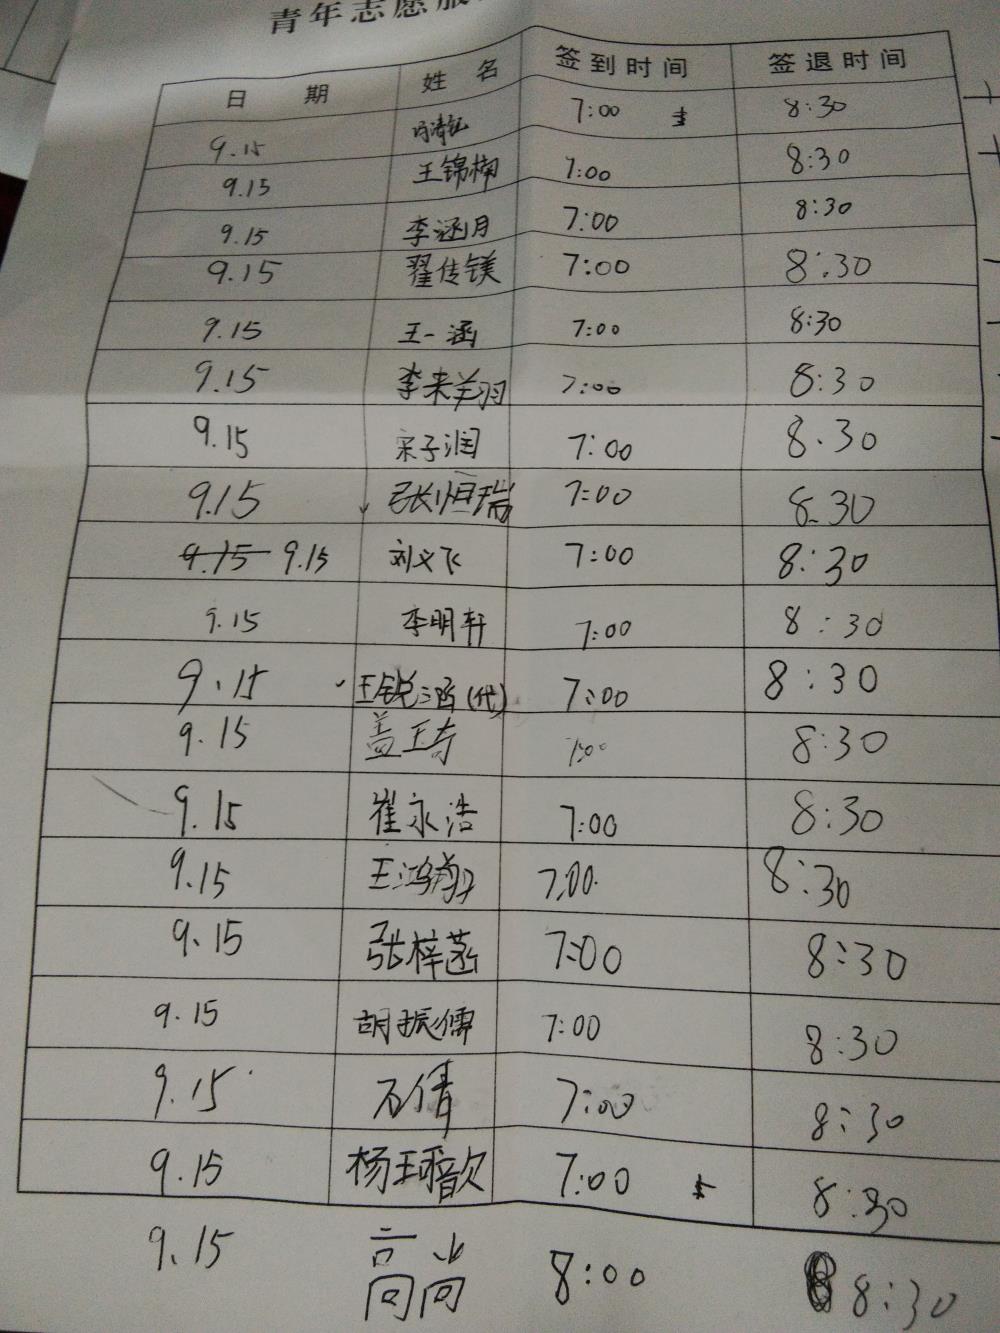 青年志愿服
日 期 姓 名 签到时间 签退时间
9.15 7:00 8:30
9.15 王锦楠 7:00 8:30
9.15 李涵月 7:00 8:30
9.15 翟传镁 7:00 8:30
9.15 王一涵 7:00 8:30
9.15 李来羊羽 7:00 8:30
9.15 宋子润 7:00 8:30
9.15 张恒瑞 7:00 8:30
9.15 9.15 刘义飞 7:00 8:30
9.15 李明轩 7:00 8:30
9.15 王锐涵(代) 7:00 8:30
9.15 盖玉奇 7:00 8:30
9.15 崔永浩 7:00 8:30
9.15 王鸿翔 7:00 8:30
9.15 张梓菡 7:00 8:30
9.15 胡振儒 7:00 8:30
9.15 石倩 7:00 8:30
9.15 杨珂歆 7:00 8:30
9.15 高尚 8:00 8:30